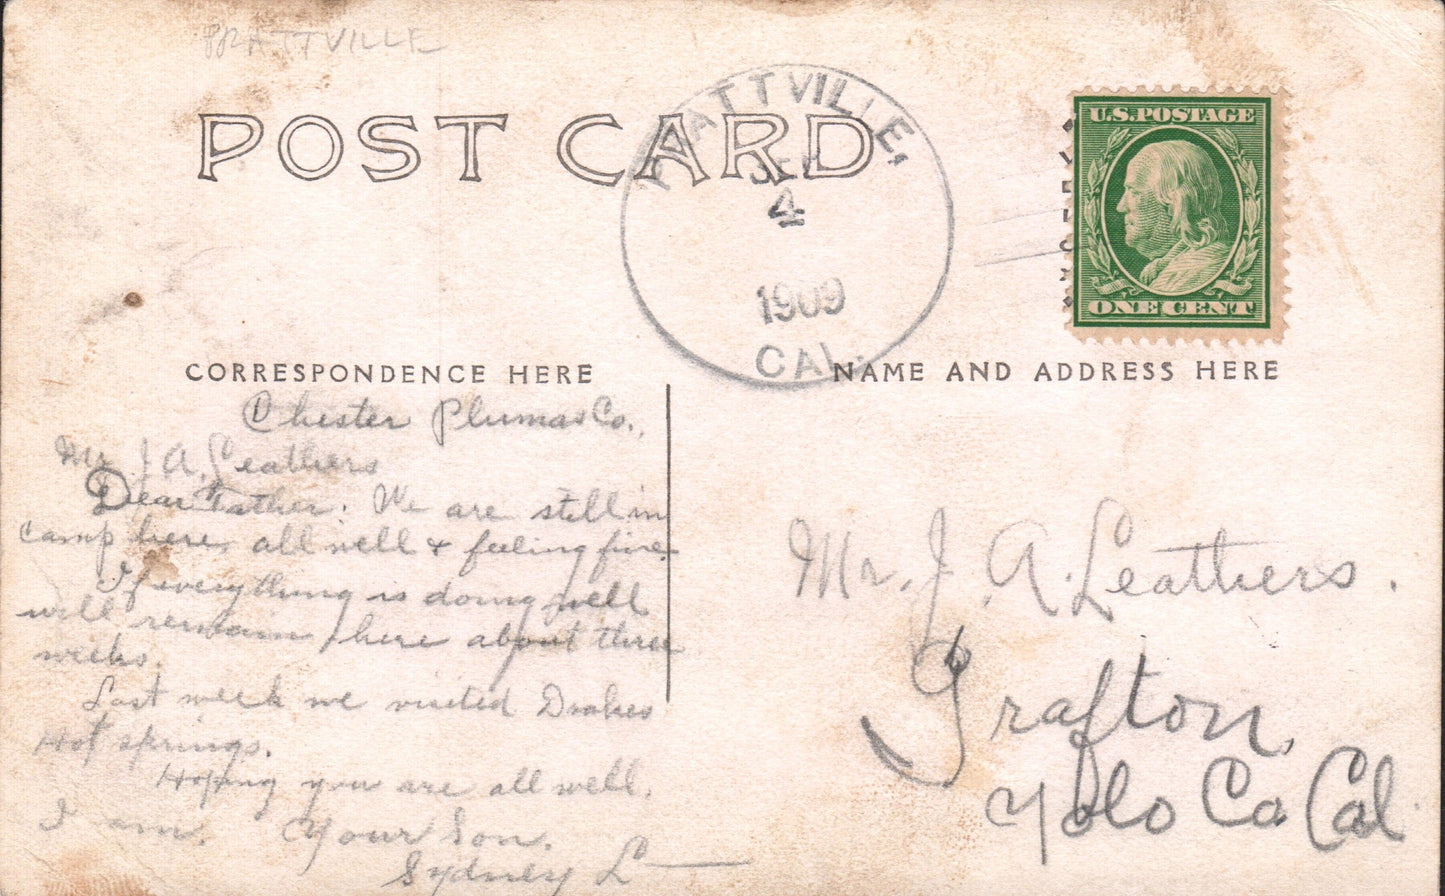 PRATTVILLE
POST CARD
PRATTVILLE,
SEP
4
1909
CAL.
U.S. POSTAGE
ONE CENT
CORRESPONDENCE HERE
Chester Plumas Co.,
Mr J A. Leathers
Dear Father. We are still in
camp here, all well & feeling fine.
If everything is doing well
will remain here about three
weeks.
Last week we visited Drakes
Hot springs.
Hoping you are all well.
I am. Your Son.
Sydney L
NAME AND ADDRESS HERE
Mr. J. A. Leathers.
Grafton,
Yolo Co Cal.